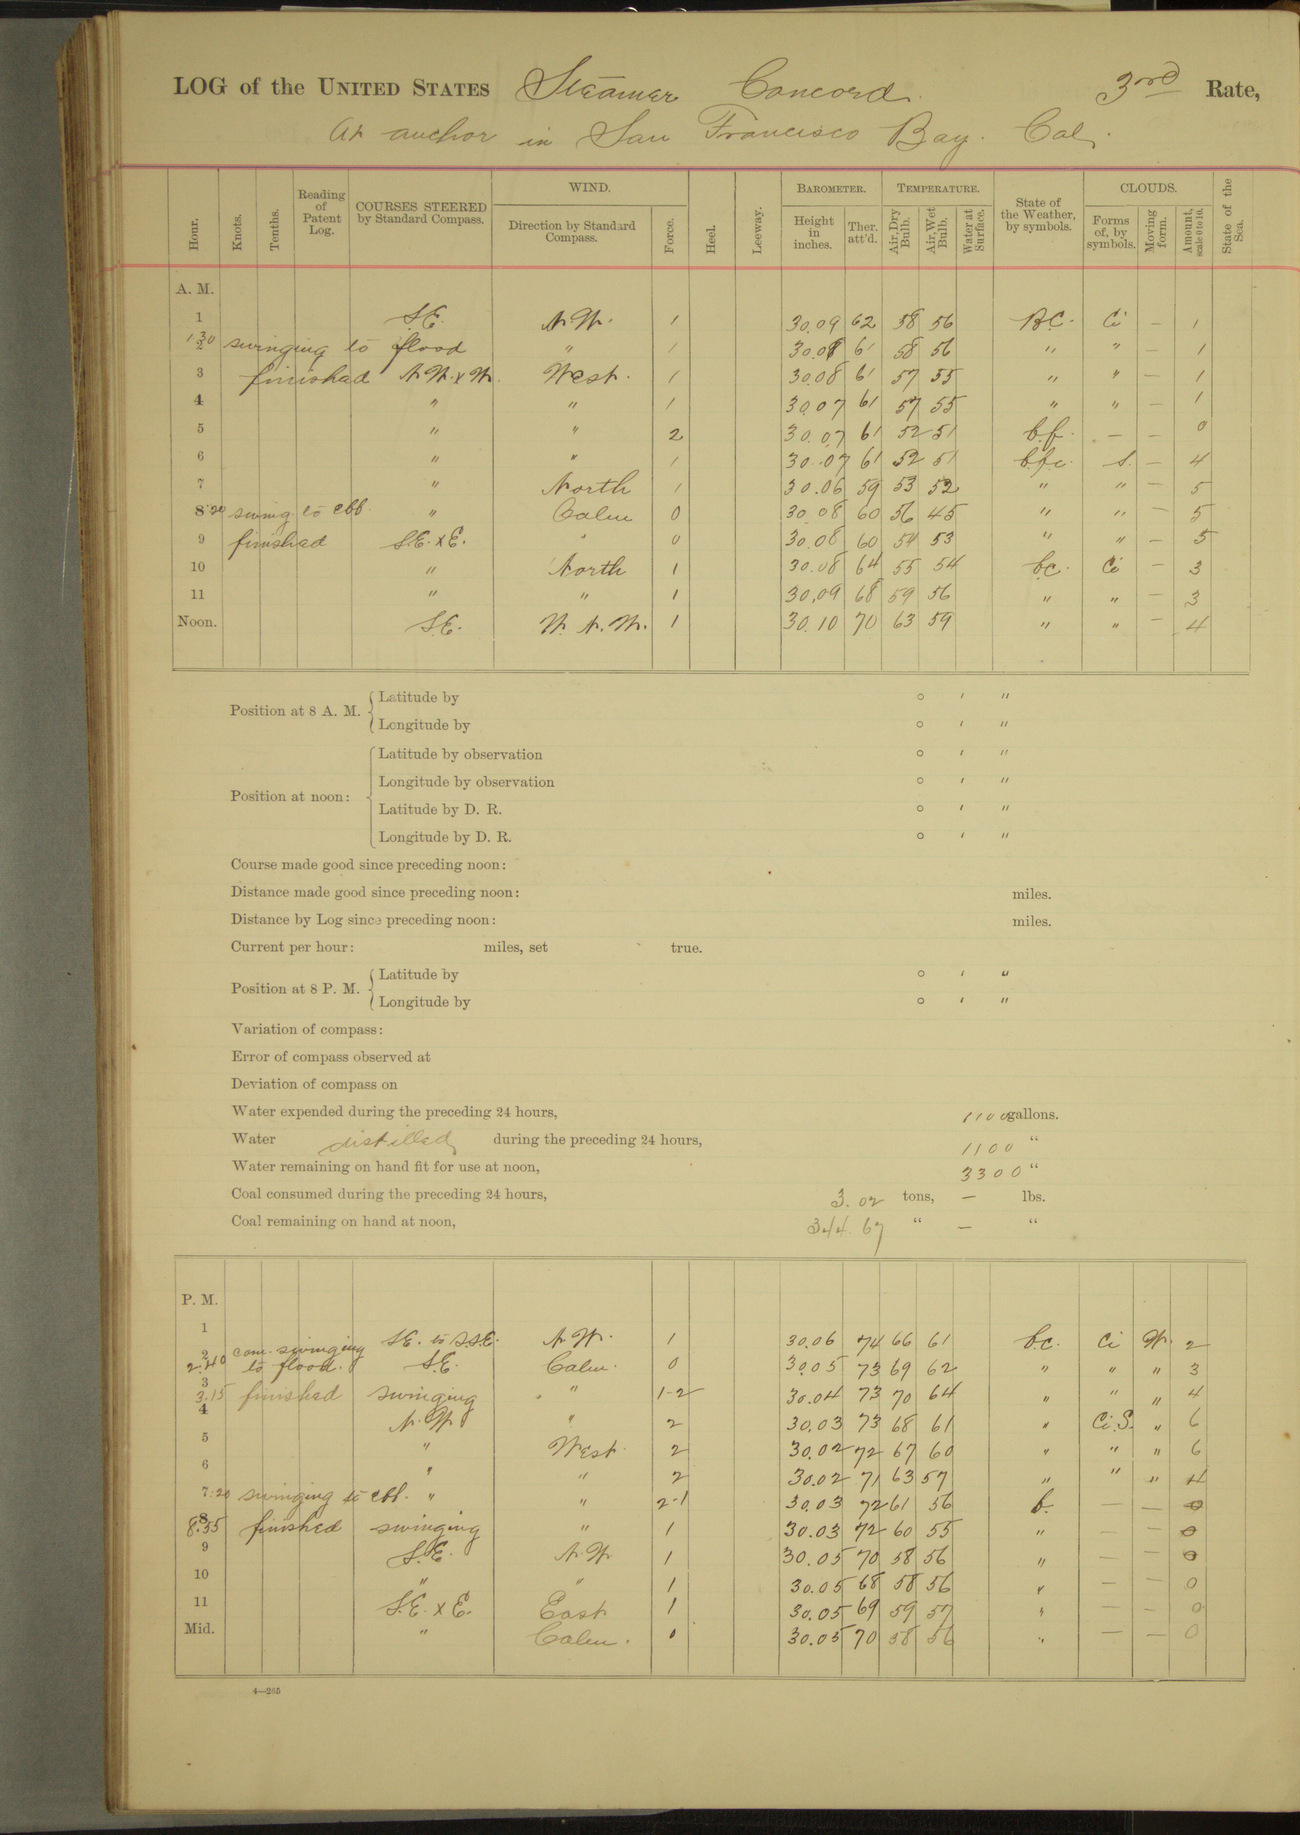 LOG of the UNITED STATES Steamer Concord. 3rd Rate,
At anchor in San Francisco Bay. Cal.
Hour. Knots. Tenths. Reading of Patent Log. COURSES STEERED by Standard Compass. WIND. Direction by Standard Compass. Force. Heel. Leeway. BAROMETER. Height in inches. Ther. att'd. TEMPERATURE. Air, Dry Bulb. Air, Wet Bulb. Water at Surface. State of the Weather, by symbols. CLOUDS. Forms of, by symbols. Moving form. Amount, scale 0 to 10. State of the Sea.
A. M.
1 S.E. N.W. 1 30.09 62 58 56 B.C. Ci — 1
1 30 2 swinging to flood " 1 30.08 61 58 56 " " — 1
3 finished N.W. x W. West. 1 30.08 61 57 55 " " — 1
4 " " 1 30.07 61 57 55 " " — 1
5 " " 2 30.07 61 52 51 b.f. — — 0
6 " " 1 30.07 61 52 51 bfc. S. — 4
7 " North 1 30.06 59 53 52 " " — 5
8 20 swing to ebb. " Calm 0 30.08 60 56 45 " " — 5
9 finished S.E. x E. " 0 30.08 60 54 53 " " — 5
10 " North 1 30.08 64 55 54 b.c. Ci — 3
11 " " 1 30.09 68 59 56 " " — 3
Noon. S.E. W. N. W. 1 30.10 70 63 59 " " — 4
Position at 8 A. M. Latitude by ° ′ ″
Longitude by ° ′ ″
Position at noon: Latitude by observation ° ′ ″
Longitude by observation ° ′ ″
Latitude by D. R. ° ′ ″
Longitude by D. R. ° ′ ″
Course made good since preceding noon:
Distance made good since preceding noon: miles.
Distance by Log since preceding noon: miles.
Current per hour: miles, set true.
Position at 8 P. M. Latitude by ° ′ ″
Longitude by ° ′ ″
Variation of compass:
Error of compass observed at
Deviation of compass on
Water expended during the preceding 24 hours, 1100 gallons.
Water distilled during the preceding 24 hours, 1100 "
Water remaining on hand fit for use at noon, 3300 "
Coal consumed during the preceding 24 hours, 3.02 tons, — lbs.
Coal remaining on hand at noon, 344.67 " — "
P. M.
1 S.E. to S.S.E. N.W. 1 30.06 74 66 61 b.c. Ci W. 2
2 2.40 com. swinging to flood. S.E. Calm. 0 30.05 73 69 62 " " " 3
3 3.15 finished swinging " 1-2 30.04 73 70 64 " " " 4
4 N.W " 2 30.03 73 68 61 " Ci.S. " 6
5 " West 2 30.02 72 67 60 " " " 6
6 " " 2 30.02 71 63 57 " " " 4
7:20 swinging to ebb. " " 2-1 30.03 72 61 56 b. — — 0
8 8.55 finished swinging " 1 30.03 72 60 55 " — — 0
9 S.E. N.W 1 30.05 70 58 56 " — — 0
10 " " 1 30.05 68 58 56 " — — 0
11 S.E. x E. East 1 30.05 69 59 57 " — — 0
Mid. " Calm. 0 30.05 70 58 56 " — — 0
4—265